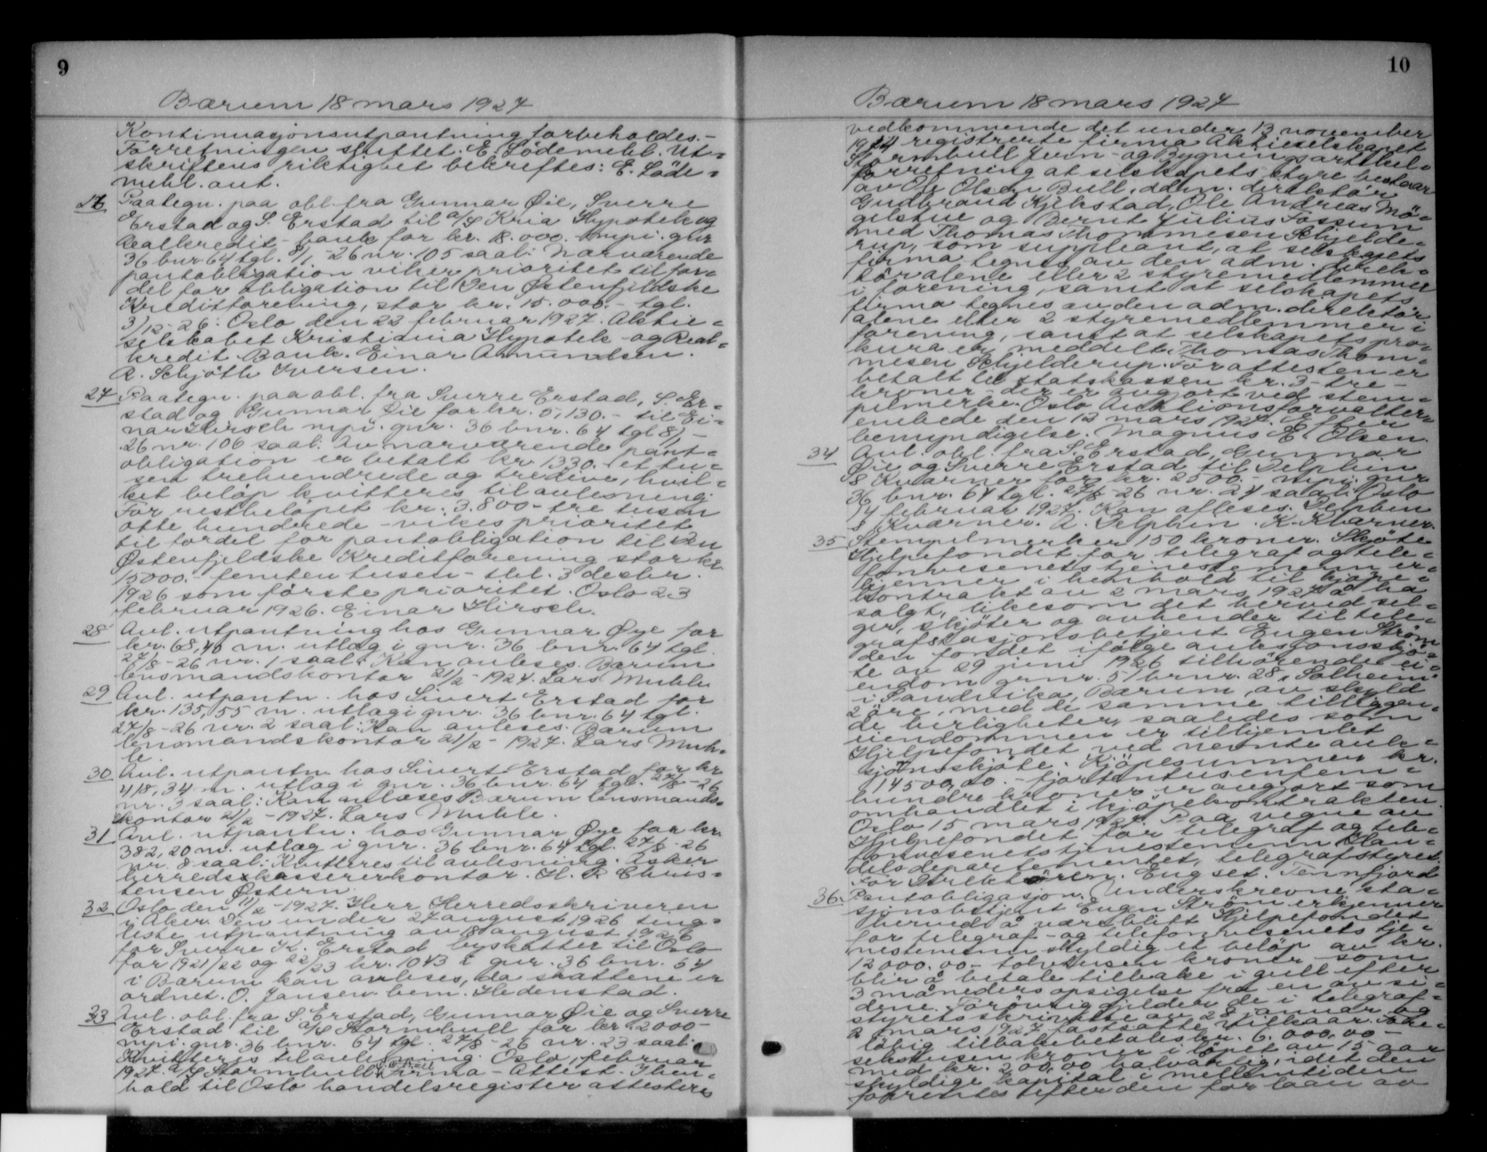 9
Bærum 18 mars 1927
Kontinuasjonsutpantning forbeholdes.-
Forretningen sluttet. E. Lödemehl. Ut-
skriftens riktighet bekreftes: E. Löde-
mehl. aut.
26 Paategn. paa obl. fra Gunnar Öie, Sverre
Erstad og S. Erstad til A/S Kria Hypotek og
Realkredit-bank for kr. 18.000.- mpi. gnr
36 bnr 64 tgl. 8/1-26 nr. 105 saal: Nærværende
pantobligation viker prioritet til for-
del for obligation til Den Østenfjeldske
Kreditforening, stor kr. 15.000.- tgl.
3/12-26. Oslo, den 22 februar 1927. Aktie-
selskabet Kristiania Hypotek- og Real-
kredit Bank. Einar Amundsen.
R. Schjöth Iversen.
27 Paategn. paa obl. fra Sverre Erstad, S. Er-
stad og Gunnar Öie for kr. 5,130.- til Ei-
nar Hirsch mpi. gnr. 36 bnr. 64 tgl 8/1-
26 nr. 106 saal: Av nærværende pant-
obligation er betalt kr. 1330.- et tu-
sen trehundrede og tredive, hvil-
ket beløp kvitteres til avlesning.
For restbeløpet kr. 3.800.- tre tusen
otte hundrede - vikes prioritet
til fordel for pantobligation til Den
Østenfjeldske Kreditforening stor kr.
15000.- femten tusen - tgl. 3 desbr.
1926 som förste prioritet. Oslo 23
februar 1926. Einar Hirsch.
28 Avl. utpantning hos Gunnar Øye for
kr. 68,40 m. utlæg i gnr. 36 bnr. 64 tgl.
27/8-26 nr. 1 saal: Kan avleses. Bærum
lensmandskontor 21/2-1927. Lars Muhle
29 Avl. utpantn. hos Sivert Erstad for
kr. 135,55 m. utlæg i gnr. 36 bnr. 64 tgl.
27/8-26 nr. 2 saal: Kan avleses. Bærum
lensmandskontor 21/2-1927. Lars Muh-
le.
30 Avl. utpantn. hos Sivert Erstad for kr
418,34 m. utlæg i gnr. 36 bnr. 64 tgl. 27/8-26
nr. 3 saal: Kan avlæses Bærum lensmands-
kontor 21/2-1927. Lars Muhle.
31 Avl. utpantn. hos Gunnar Øye for kr.
382,20 m. utlæg i gnr. 36 bnr. 64 tgl. 27/8-26
nr. 8 saal: Kvitteres til avlesning. Asker
herredskassererkontor. H. P. Chris-
tensen Østern.
32 Oslo den 11/2-1927. Herr Herredsskriveren
i Aker. Den under 27 august 1926 ting-
leste utpantning av 18 august 1926
for Sverre K. Erstad byskatter til Oslo
for 1921/22 og 22/23 kr. 1043 i gnr. 36 bnr. 64
i Bærum kan avleses, da skattene er
ordnet. O. Jansen bem. Hedenstad.
33 Avl. obl. fra S. Erstad, Gunnar Öie og Sverre
Erstad til A/S Stormbull for kr. 2000-
mpi. gnr. 36 bnr. 64 tgl. 27/8-26 nr. 23 saal:
Kvitteres til avlesning. Oslo, februar
1927. A/S Stormbull. Firma-Attest. I hen-
hold til Oslo handelsregister attesteres
10
Bærum 18 mars 1927
vedkommende det under 13 november
1914 registrerte firma Aktieselskapet
Stormbull Jern- og Bygningsartikel-
forretning at selskapets styre bestaar
av Ole Olsen Bull, adm. direktör,
Gudbrand Kjelstad, Ole Andreas Mö-
gelstue og Bernt Julius Fossum
med Thomas Thommesen Schjelde-
rup, som suppleant, at selskapets
firma tegnes av den adm. direk-
tör alene eller 2 styremedlemmer
i forening, samt at selskapets
firma tegnes av den adm. direktör
alene eller 2 styremedlemmer i
forening, samt at selskapets pro-
kura er meddelt Thomas Thom-
mesen Schjelderup. For attesten er
betalt til statskassen kr. 3- tre-
kroner, der er avgjort ved stem-
pelmerke. Oslo Auktionsforvalter-
embede den 12 mars 1927. Efter
bemyndigelse. Magnus E. Olsen.
34 Avl. obl. fra S. Erstad, Gunnar
Öie og Sverre Erstad til Delphin
& Kværner for kr. 2500.- mpi. gnr
36 bnr. 64 tgl. 27/8-26 nr. 24 saal: Oslo
februar 1927. Kan afleses. Delphin
& Kværner. A. Delphin. K. Kværner.
35 Stempelmerker 150 kroner. Skjöte
Hjelpefondet for telegraf og tele-
fonvesenets tjenestemenn er-
kjenner i henhold til kjöpe-
kontrakt av 2 mars 1927 å ha
solgt, likesom det herved sel-
ger, skjöter og avhender til tele-
grafstasjonsbetjent Eugen Ström
den fondet ifölge auksjonsskjö-
te av 29 juni 1926 tilhörende ei-
endom gnr. 51 brnr. 28, Solheim
i Sandvika, Bærum, av skyld
2 öre, med de samme tilliggen-
de herligheter, saaledes som
eiendommen er tilhjemlet
Hjelpefondet ved nevnte auk-
sjonsskjöte. Kjöpesummen kr.
14500,00.- fjortentusenfem-
hundre kroner er avgjort som
omhandlet i kjöpekontrakten.
Oslo 15 mars 1927. Paa vegne av
Hjelpefondet for telegraf og tele-
fonvesenets tjenestemenn Han-
delsdepartementet, telegrafstyret.
For Direktören. Eng set. Tennfjord
36. Pantobligasjon. Underskrevne sta-
sjonsbetjent Eugen Ström erkjenner
herved å være blitt Hjelpefondet
for telegraf- og telefonvesenets tje-
nestemenn skyldig et belöp av kr.
12000,00. tolvtusen kroner som
blir å betale tilbake i gull efter
3 måneders opsigelse fra en av si-
dene. Forövrig gjelder de i telegraf-
styrets skrivelse av 28 januar og
2 mars 1927 fastsatte vilkaar. Fore-
löbig tilbakebetales kr. 6.000,00
sekstusen kroner i löpet av 15 aar
med kr. 200,00 halvårlig, idet den
skyldige kapital i mellemtiden
forrentes efter den for laan av